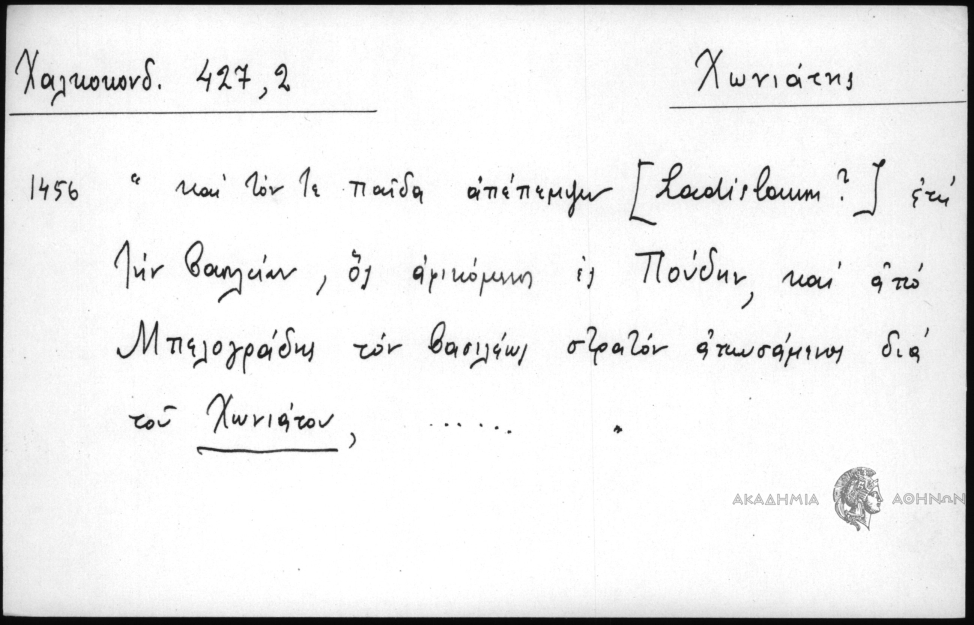 Χαλκοκονδ. 427,2
Χωνιάτης
1456 “ καὶ τόν τε παῖδα ἀπέπεμψεν [Ladislaum ?] ἐπὶ
τὴν βασιλείαν, ὃς ἀφικόμενος ἐς Πούδην, καὶ ἀπὸ
Μπελογράδης τὸν βασιλέως στρατὸν ἀπωσάμενος διὰ
τοῦ Χωνιάτου, ...... ”
ΑΚΑΔΗΜΙΑ ΑΘΗΝΩΝ